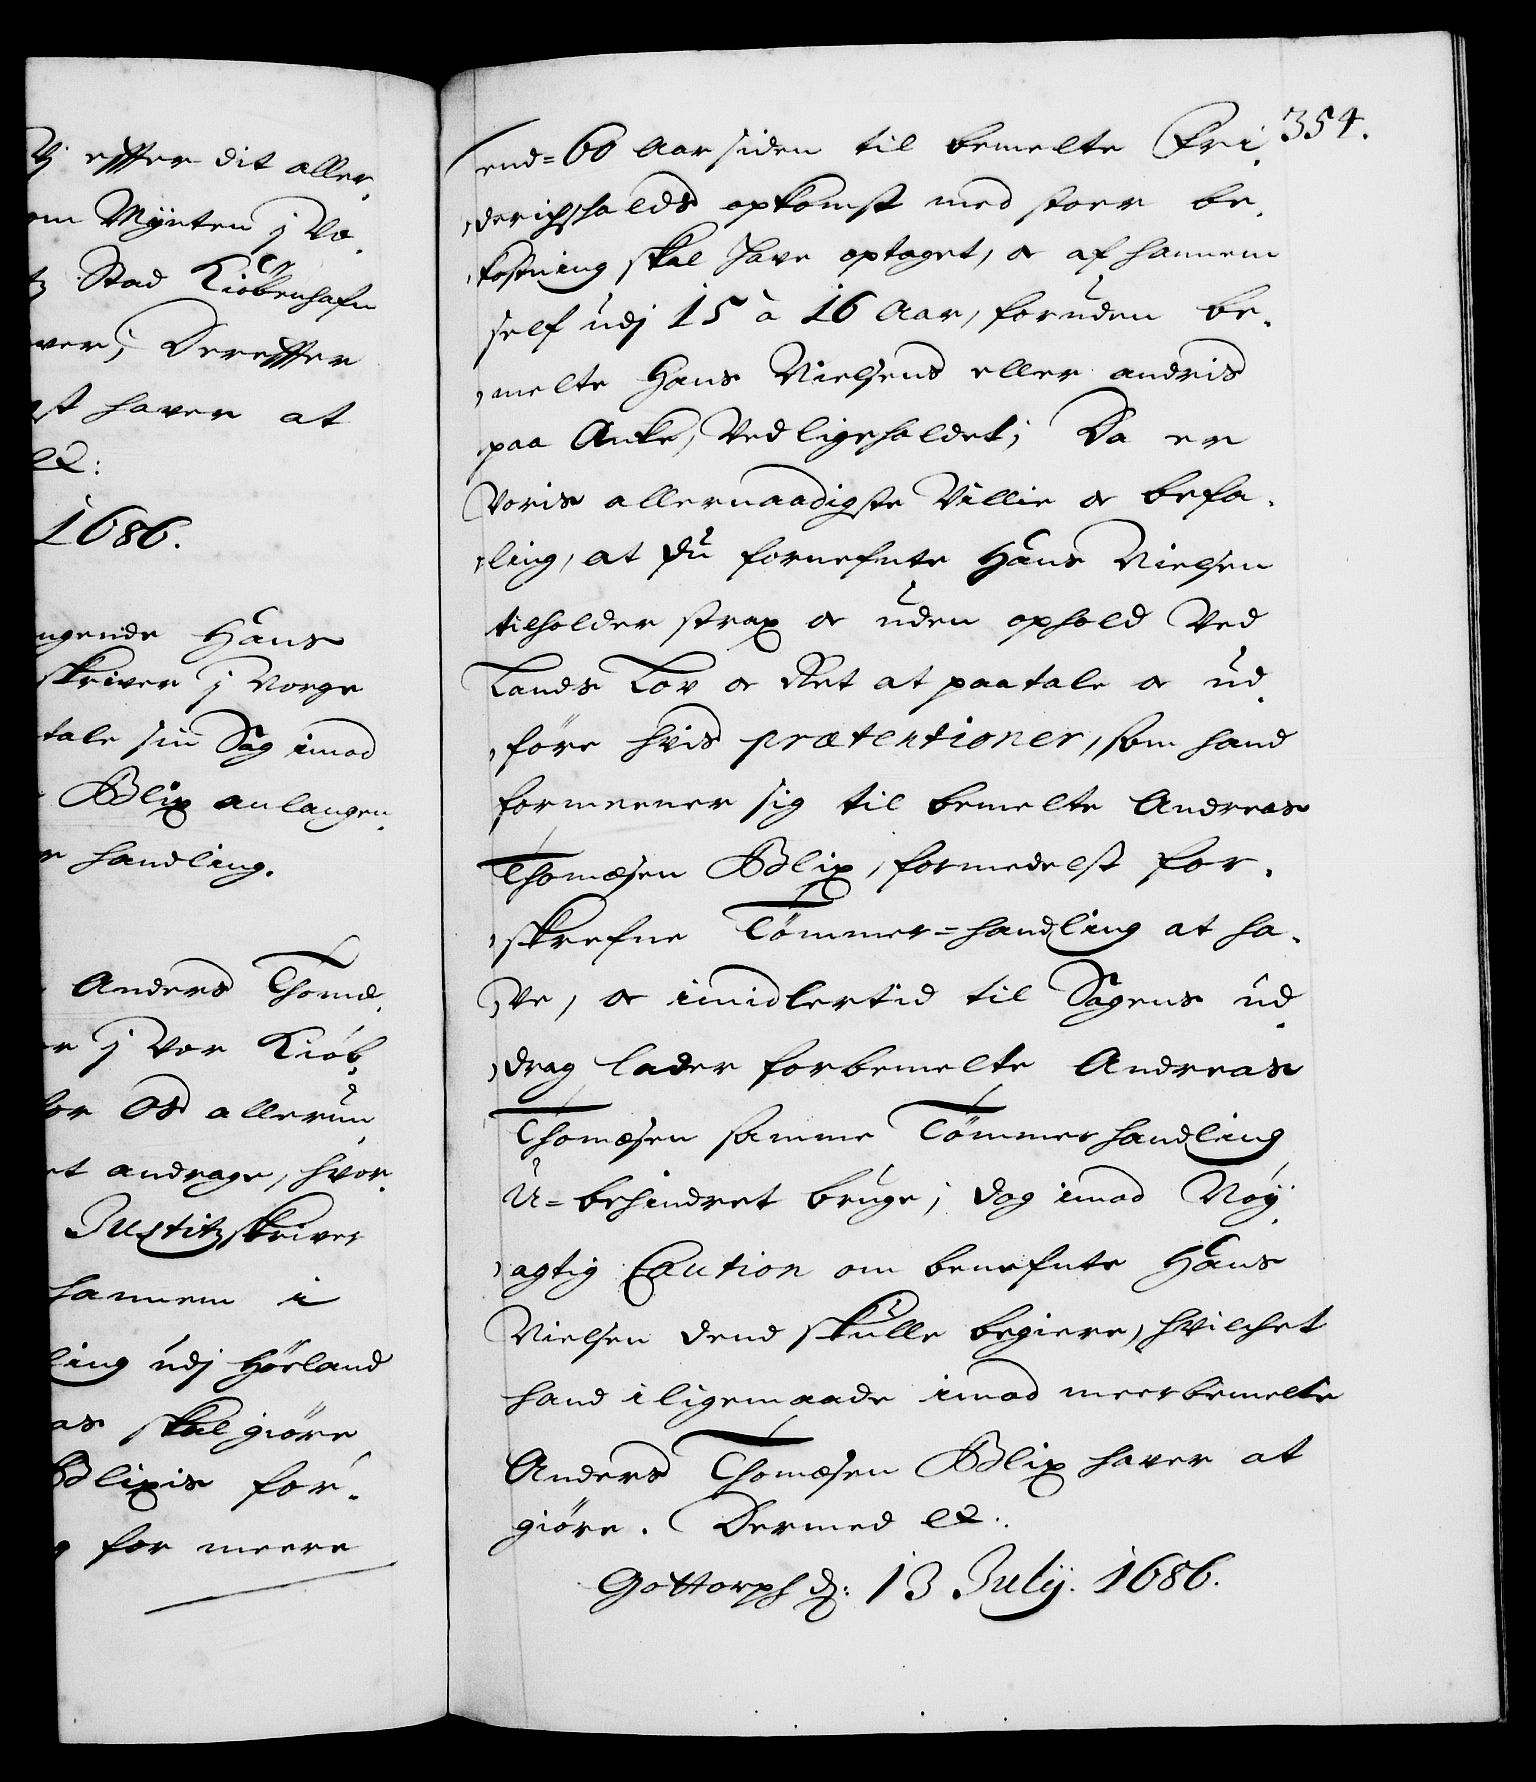 Vj effter dit aller,
om Mÿnten j Vo,
tz Stad Kiöbenhafn
ver; Dereffter
st haver at
etc:
1686.
ngende Hans
skriver j Norge
tale sin Sag imod
Blix anlangen,
r handling.
Anders Thomæ,
er j vor Kiöb,
for Os allerun,
et andrage, hvor,
Justitzskriver
hannem i
ling udj Hörland
as skal giöre
Blixis for,
g for meere
354.
end=60 Aar siden til bemelte Fri,
,derichshalds opkomst med stoer be,
,kostning skal have optaget, oc af hannem
self udj 15 à 16 Aar, foruden be,
,melte Hans Nielsens eller andris
paa Anke, Vedligeholdet; Da er
Voris allernaadigste Villie oc befa,
,ling, at du fornefnte Hans Nielsen
tilholder strax oc uden ophold Ved
Lands Lov oc Ret at paatale oc ud,
,före hvis prætentioner, som hand
formeener sig til bemelte Andreas
Thomæsen Blix, formedelst for,
,skrefne Tömmer=handling at ha,
,ve, oc imidlertid til Sagens ud,
,drag lader forbemelte Andreas
Thomæsen samme Tömmerhandling
U=behindret bruge; dog imod Nöy,
,agtig Caution om benefnte Hans
Nielsen dend skulle begiere, hvilchet
hand iligemaade imod meerbemelte
Anders Thomæsen Blix haver at
giöre. Dermed etc:
Gottorph d: 13 Julij. 1686.